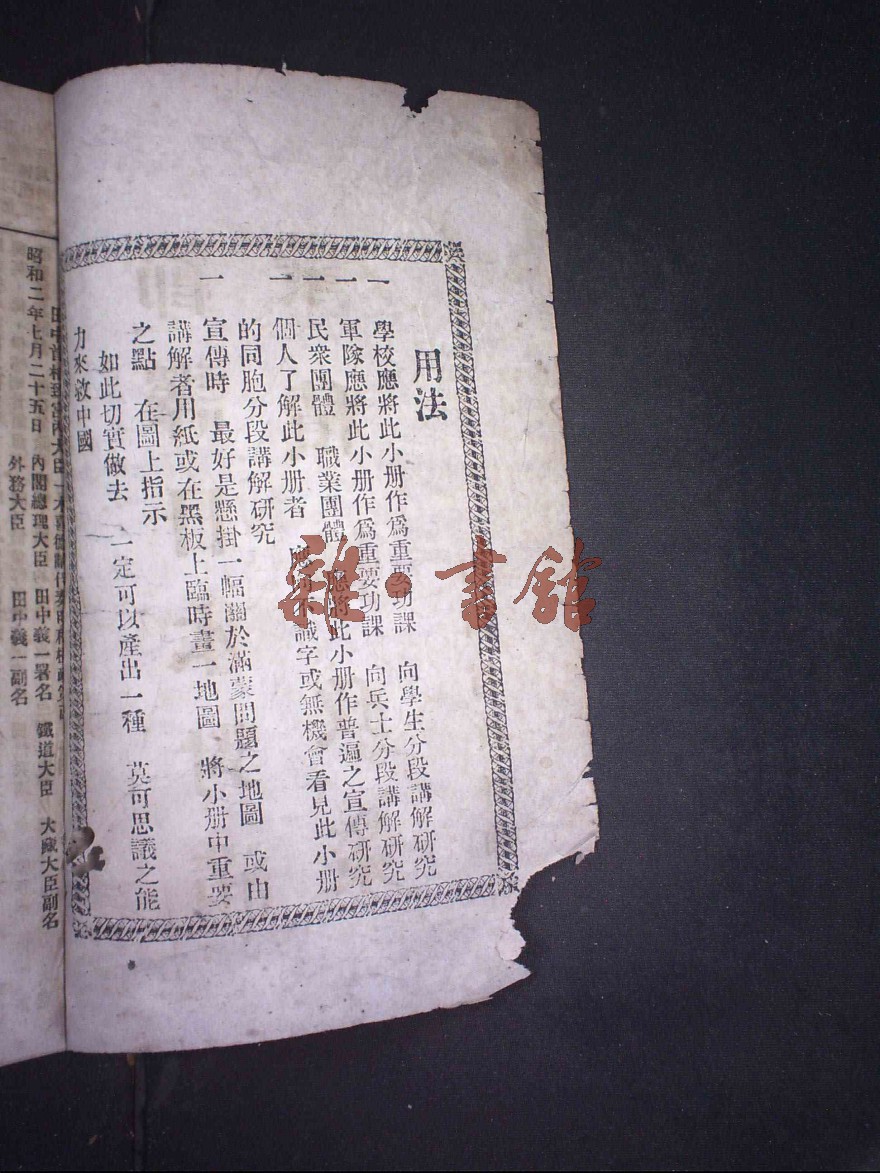 用法
一 學校應將此小册作爲重要功課 向學生分段講解研究
一 軍隊應將此小册作爲重要功課 向兵士分段講解研究
一 民衆團體 職業團體 應將此小册作普遍之宣傳研究
一 個人了解此小册者 應向不識字或無機會看見此小册
的同胞分段講解研究
一 宣傳時 最好是懸掛一幅關於滿蒙問題之地圖 或由
講解者用紙或在黑板上臨時畫一地圖 將小册中重要
之點 在圖上指示
如此切實做去 一定可以產出一種 莫可思議之能
力來救中國
昭和二年七月二十五日 內閣總理大臣 田中義一署名 鐵道大臣 大藏大臣副名
外務大臣 田中義一副名
雜·書館